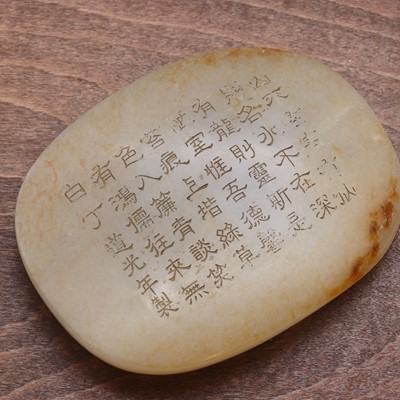 山不在高有仙
則名水不在深
有龍則靈斯是
陋室惟吾德馨
苔痕上階綠草
色入簾青談笑
有鴻儒往來無
白丁道光年製